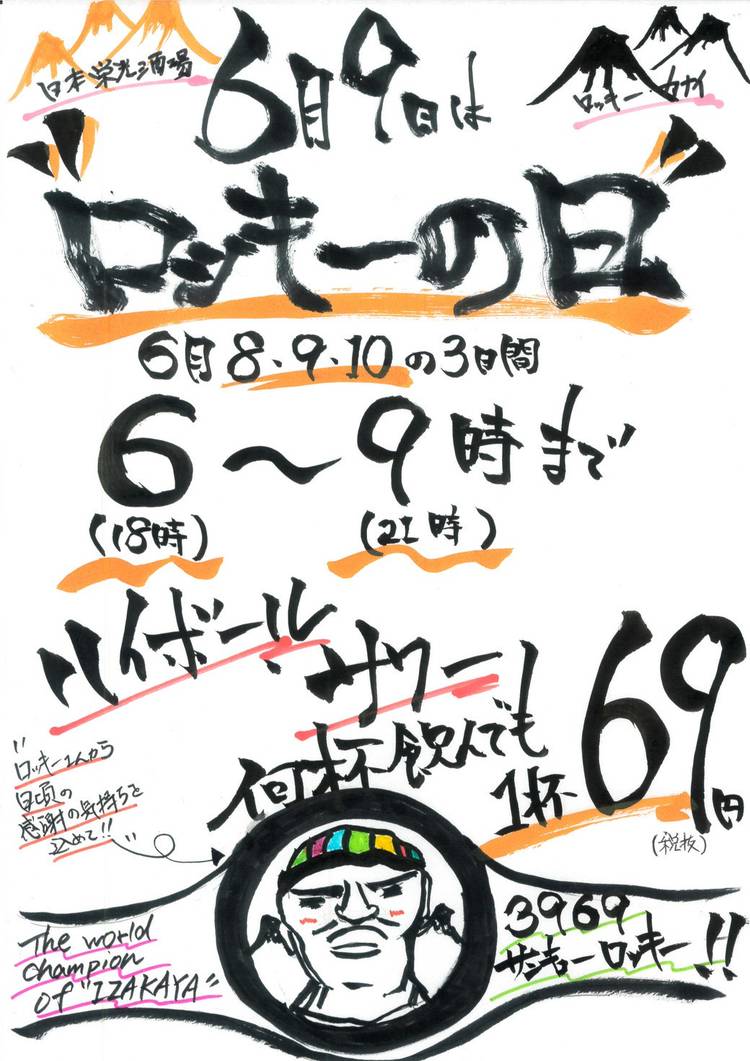 日本栄光酒場
ロッキーカナイ
6月9日は
"ロッキーの日"
6月8、9、10の3日間
6〜9時まで
(18時)
(21時)
ハイボール
サワー
何杯飲んでも
1杯69円
(税抜)
"ロッキーさんから
日頃の
感謝の気持ちを
込めて!!"
The world
champion
of "IZAKAYA"
3969
サンキューロッキー!!